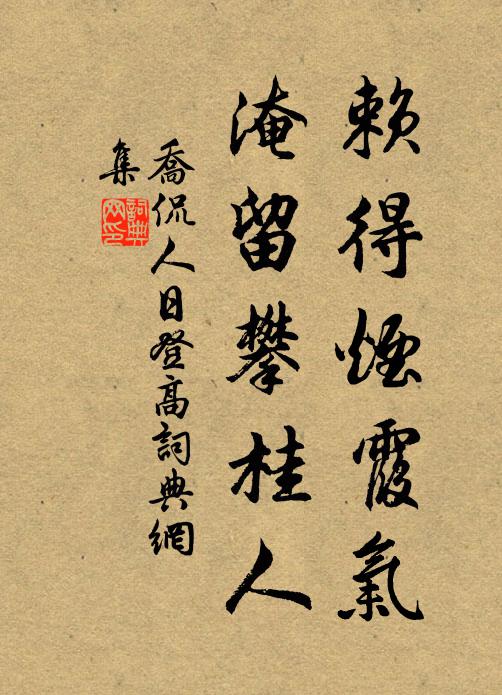 賴得煙霞氣
淹留攀桂人
喬侃人日登高詞典網
集
詞典
网印